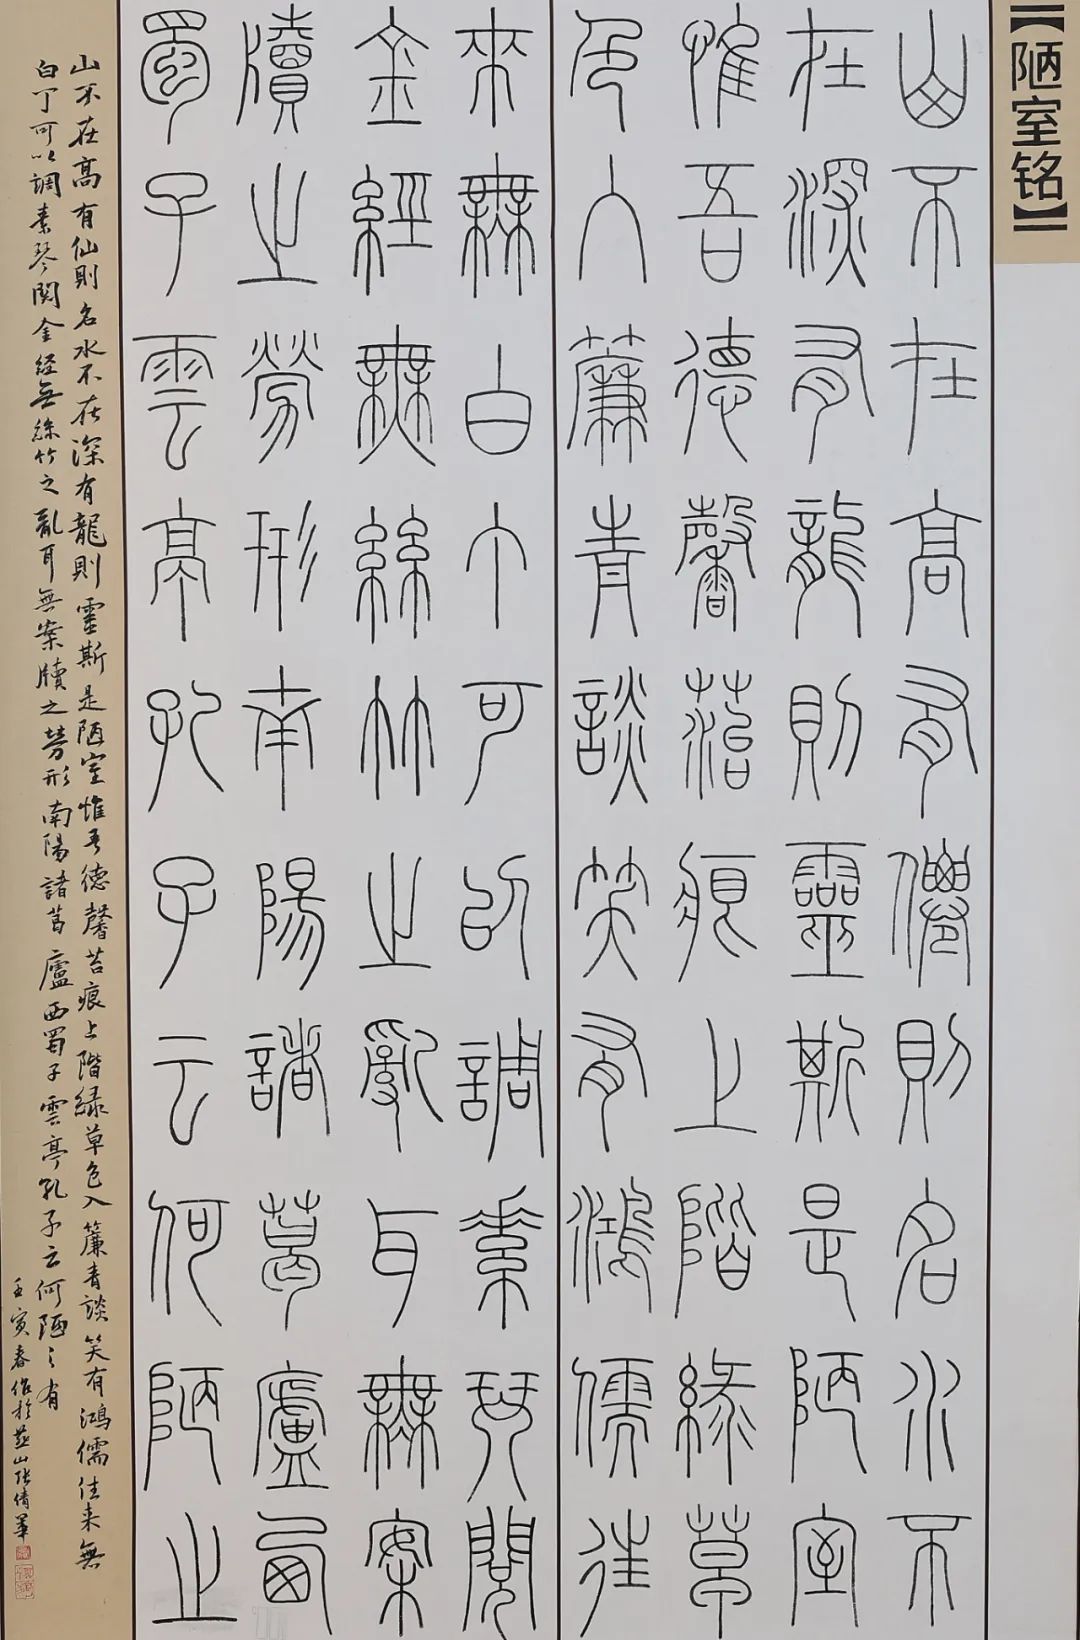 【陋室铭】
山不在高有僊則名水不
在深有龍則靈斯是陋室
惟吾德馨菭痕上階綠草
色入簾青談笑有鴻儒往
來無白丁可以調素琴閱
金經無絲竹之亂耳無案
牘之勞形南陽諸葛廬西
蜀子雲亭孔子云何陋之
山不在高有仙則名水不在深有龍則靈斯是陋室惟吾德馨苔痕上階綠草色入簾青談笑有鴻儒往来無
白丁可以調素琴閱金經無絲竹之亂耳無案牘之勞形南陽諸葛廬西蜀子雲亭孔子云何陋之有
壬寅春作於燕山張倩華